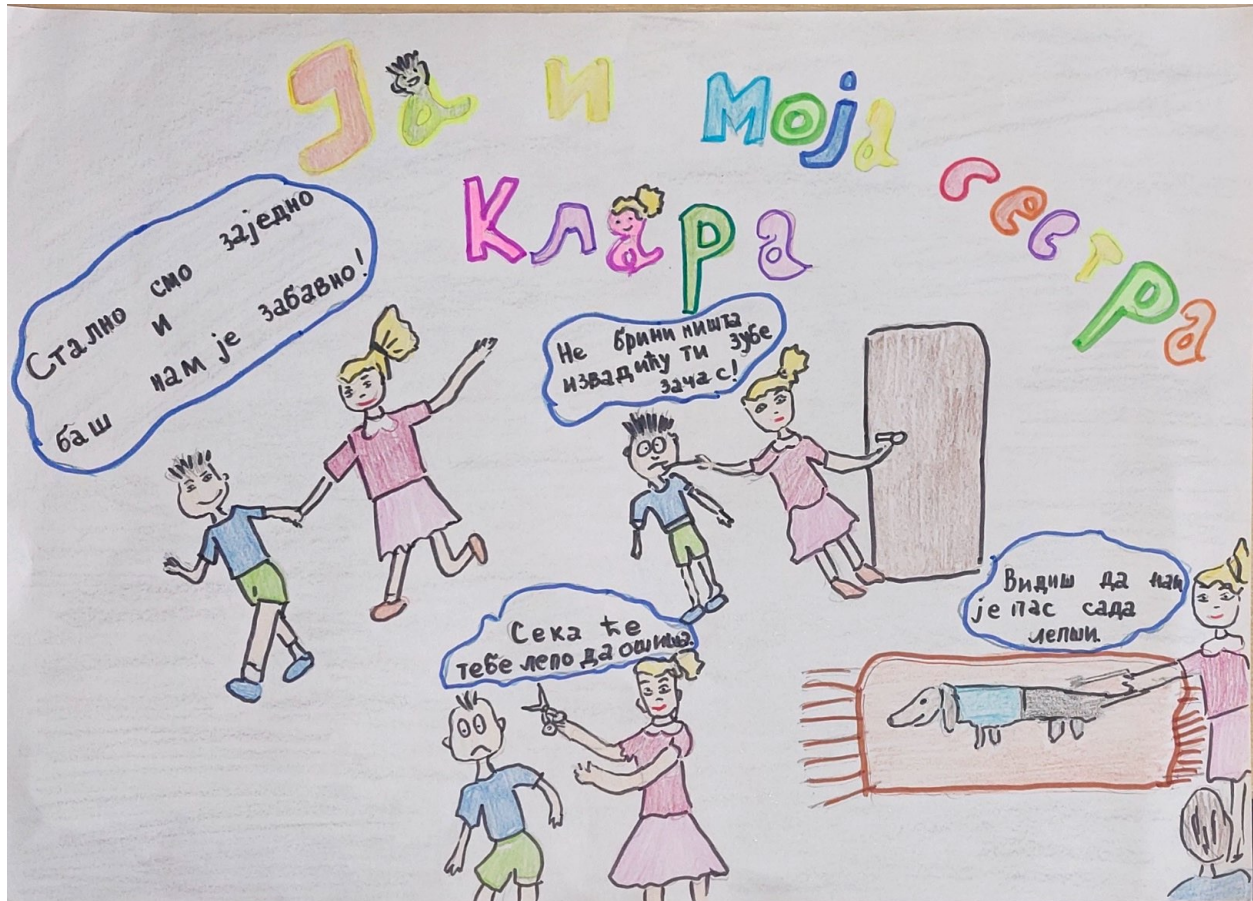 Ја и моја сестра
Клара
Стално смо заједно
и
баш нам је забавно!
Не брини ништа
извадићу ти зубе
зачас!
Сека ће
тебе лепо да ошиша.
Видиш да нам
је пас сада
лепши.